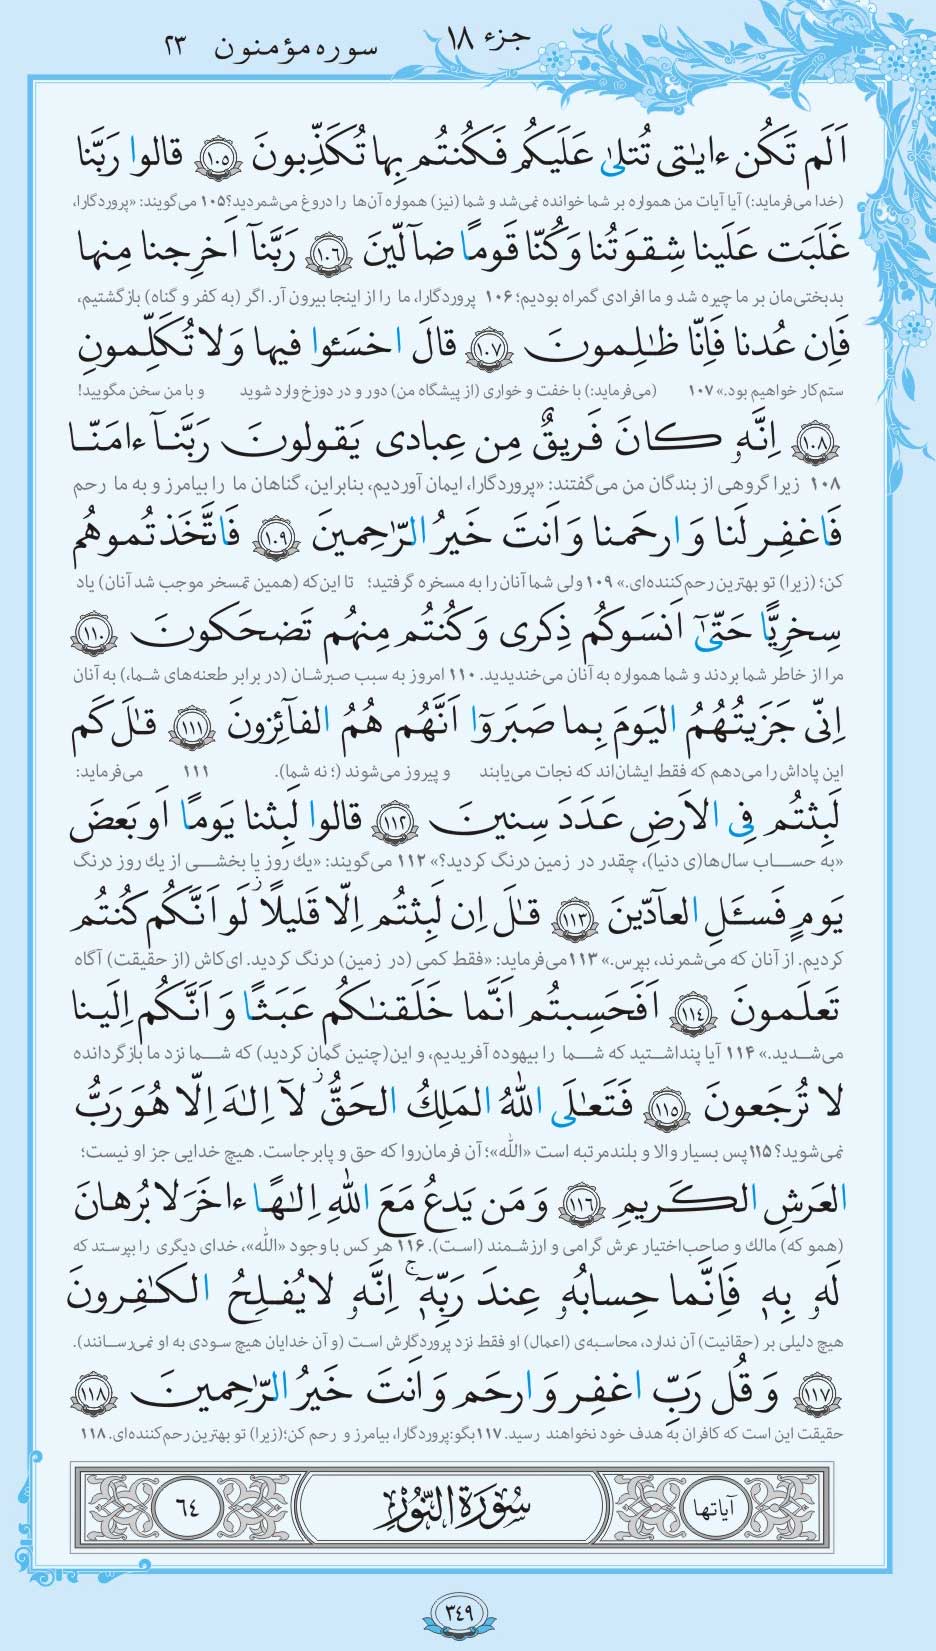 جزء ۱۸
سوره مؤمنون ۲۳
اَلَم تَکُن ءایٰتی تُتلیٰ عَلَیکُم فَکُنتُم بِها تُکَذِّبونَ ۱۰۵ قالوا رَبَّنا
(خدا می‌فرماید:) آیا آیات من همواره بر شما خوانده نمی‌شد و شما (نیز) همواره آن‌ها را دروغ می‌شمردید؟ ۱۰۵ می‌گویند: «پروردگارا،
غَلَبَت عَلَینا شِقوَتُنا وَ کُنّا قَومًا ضآلّینَ ۱۰۶ رَبَّنآ اَخرِجنا مِنها
بدبختی‌مان بر ما چیره شد و ما افرادی گمراه بودیم؛ ۱۰۶ پروردگارا، ما را از اینجا بیرون آر. اگر (به کفر و گناه) بازگشتیم،
فَاِن عُدنا فَاِنّا ظٰلِمونَ ۱۰۷ قالَ اخسَئوا فیها وَ لا تُکَلِّمونِ
ستم‌کار خواهیم بود.» ۱۰۷ (می‌فرماید:) با خفت و خواری (از پیشگاه من) دور و در دوزخ وارد شوید و با من سخن مگویید!
۱۰۸ اِنَّهٗ کانَ فَریقٌ مِن عِبادی یَقولونَ رَبَّنآ ءامَنّا
۱۰۸ زیرا گروهی از بندگان من می‌گفتند: «پروردگارا، ایمان آوردیم، بنابراین، گناهان ما را بیامرز و به ما رحم
فَاغفِر لَنا وَ ارحَمنا وَ اَنتَ خَیرُ الرّٰحِمینَ ۱۰۹ فَاتَّخَذتُموهُم
کن؛ (زیرا) تو بهترین رحم‌کننده‌ای.» ۱۰۹ ولی شما آنان را به مسخره گرفتید؛ تا این‌که (همین تمسخر موجب شد آنان) یاد
سِخرِیًّا حَتّیٰٓ اَنسَوکُم ذِکری وَ کُنتُم مِنهُم تَضحَکونَ ۱۱۰
مرا از خاطر شما بردند و شما همواره به آنان می‌خندیدید. ۱۱۰ امروز به سبب صبرشان (در برابر طعنه‌های شما،) به آنان
اِنّی جَزَیتُهُمُ الیَومَ بِما صَبَرَوٓا اَنَّهُم هُمُ الفآئِزونَ ۱۱۱ قٰلَ کَم
این پاداش را می‌دهم که فقط ایشان‌اند که نجات می‌یابند و پیروز می‌شوند (؛ نه شما). ۱۱۱ می‌فرماید:
لَبِثتُم فِی الاَرضِ عَدَدَ سِنینَ ۱۱۲ قالوا لَبِثنا یَومًا اَو بَعضَ
«به حساب سال‌ها(ی دنیا)، چقدر در زمین درنگ کردید؟» ۱۱۲ می‌گویند: «یك روز یا بخشی از یك روز درنگ
یَومٍ فَسـَٔلِ العآدّینَ ۱۱۳ قٰلَ اِن لَبِثتُم اِلّا قَلیلًا ز لَو اَنَّکُم کُنتُم
کردیم. از آنان که می‌شمرند، بپرس.» ۱۱۳ می‌فرماید: «فقط کمی (در زمین) درنگ کردید. ای‌کاش (از حقیقت) آگاه
تَعلَمونَ ۱۱۴ اَفَحَسِبتُم اَنَّما خَلَقنٰکُم عَبَثًا وَ اَنَّکُم اِلَینا
می‌شدید.» ۱۱۴ آیا پنداشتید که شما را بیهوده آفریدیم، و این(چنین گمان کردید) که شما نزد ما بازگردانده
لا تُرجَعونَ ۱۱۵ فَتَعٰلَی اللّٰهُ المَلِكُ الحَقُّ ز لآ اِلٰهَ اِلّا هُوَ رَبُّ
نمی‌شوید؟ ۱۱۵ پس بسیار والا و بلندمرتبه است «اللّٰه»؛ آن فرمان‌روا که حق و پابرجاست. هیچ خدایی جز او نیست؛
العَرشِ الکَریمِ ۱۱۶ وَ مَن یَدعُ مَعَ اللّٰهِ اِلٰهًا ءاخَرَ لا بُرهانَ
(همو که) مالك و صاحب‌اختیار عرش گرامی و ارزشمند (است). ۱۱۶ هر کس با وجود «اللّٰه»، خدای دیگری را بپرستد که
لَهٗ بِهٖ فَاِنَّما حِسابُهٗ عِندَ رَبِّهٖٓ ج اِنَّهٗ لا یُفلِحُ الکٰفِرونَ
هیچ دلیلی بر (حقانیت) آن ندارد، محاسبه‌ی (اعمال) او فقط نزد پروردگارش است (و آن خدایان هیچ سودی به او نمی‌رسانند).
۱۱۷ وَ قُل رَبِّ اغفِر وَ ارحَم وَ اَنتَ خَیرُ الرّٰحِمینَ ۱۱۸
حقیقت این است که کافران به هدف خود نخواهند رسید. ۱۱۷ بگو: پروردگارا، بیامرز و رحم کن؛ (زیرا) تو بهترین رحم‌کننده‌ای. ۱۱۸
آیاتها سُورَةُ النُّورِ ٦٤
۳۴۹